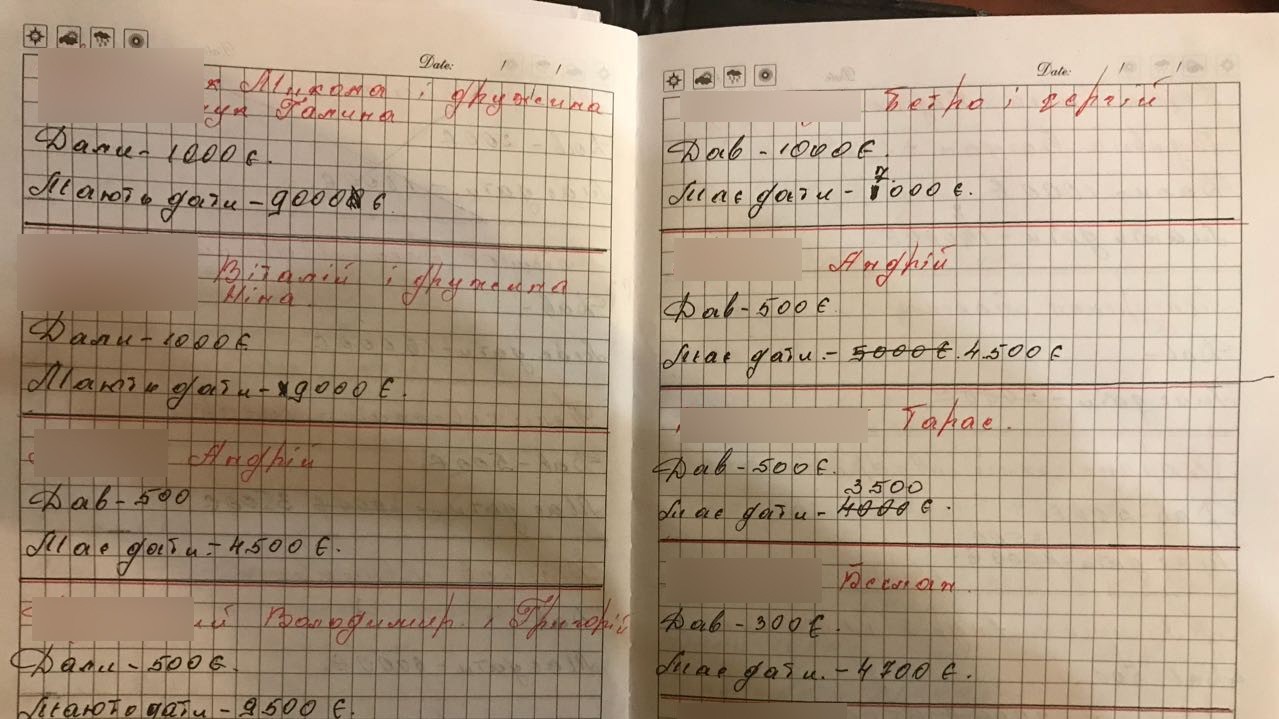 Date: / /
Микола і дружина
Галина
Дали - 1000 €.
Мають дати - 9000 €.
Віталій і дружина
Ніна.
Дали - 1000 €
Мають дати - 9000 €.
Андрій
Дав - 500
Має дати - 4500 €.
ий Володимир і Григорій
Дали - 500 €.
Мають дати - 9500 €.
Date: / /
Петро і Сергій
Дав - 1000 €.
Має дати - 7000 €.
Андрій
Дав - 500 €
Має дати - 5000 €. 4.500 €
Тарас.
Дав - 500 €.
3500
Має дати - 4000 €.
Дав - 300 €.
Має дати. - 4700 €.